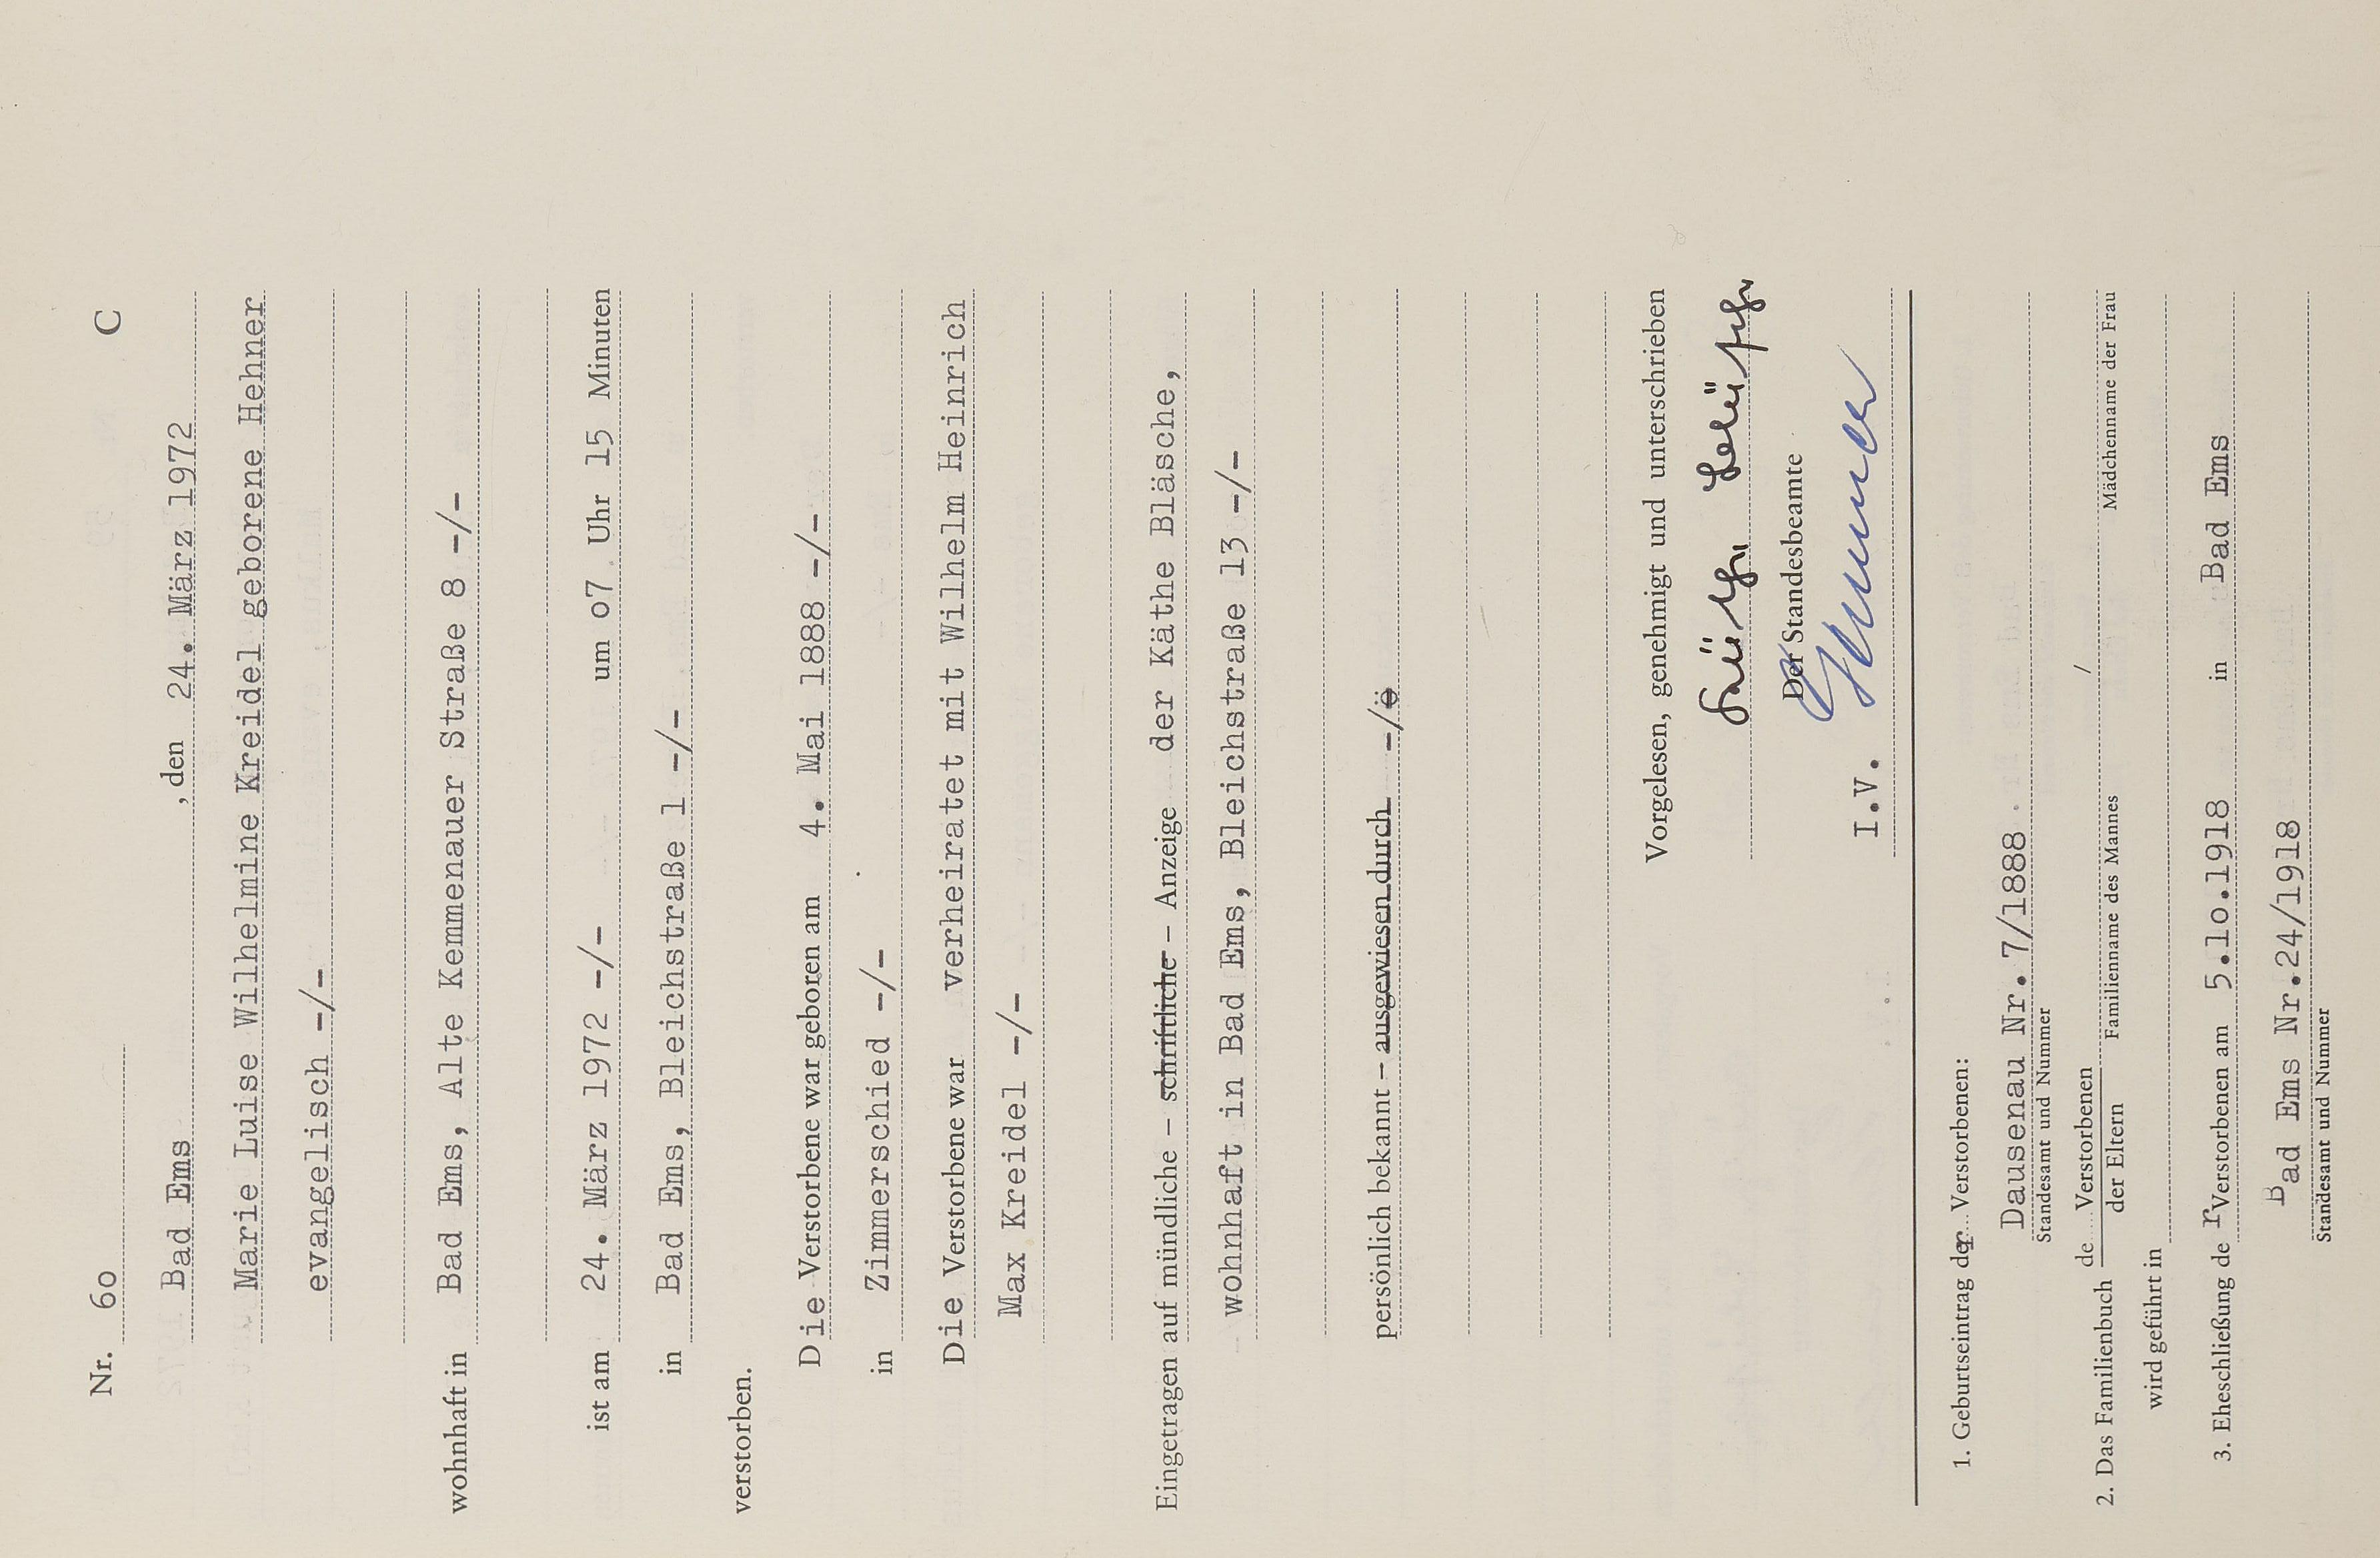 Nr. 60 C
Bad Ems, den 24. März 1972
Marie Luise Wilhelmine Kreidel geborene Hehner
evangelisch -/-
wohnhaft in Bad Ems, Alte Kemmenauer Straße 8 -/-
ist am 24. März 1972 -/- um 07 Uhr 15 Minuten
in Bad Ems, Bleichstraße 1 -/-
verstorben.
Die Verstorbene war geboren am 4. Mai 1888 -/-
in Zimmerschied -/-
Die Verstorbene war verheiratet mit Wilhelm Heinrich
Max Kreidel -/-
Eingetragen auf mündliche – schriftliche – Anzeige der Käthe Bläsche,
wohnhaft in Bad Ems, Bleichstraße 13 -/-
persönlich bekannt – ausgewiesen durch -/ö
Vorgelesen, genehmigt und unterschrieben
Der Standesbeamte
I.V.
1. Geburtseintrag der Verstorbenen:
Dausenau Nr. 7/1888
Standesamt und Nummer
2. Das Familienbuch de Verstorbenen /
der Eltern Familienname des Mannes Mädchenname der Frau
wird geführt in
3. Eheschließung der Verstorbenen am 5.10.1918 in Bad Ems
Bad Ems Nr.24/1918
Standesamt und Nummer